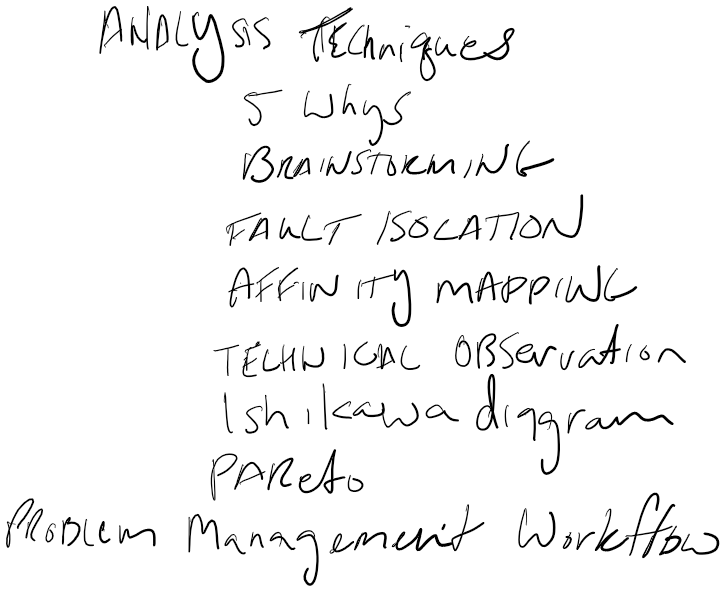 ANALYSIS Techniques
5 Whys
BRAINSTORMING
FAULT ISOLATION
AFFINITY MAPPING
TECHNICAL OBServation
Ishikawa diagram
PAReto
PROBLEM Management Workflow